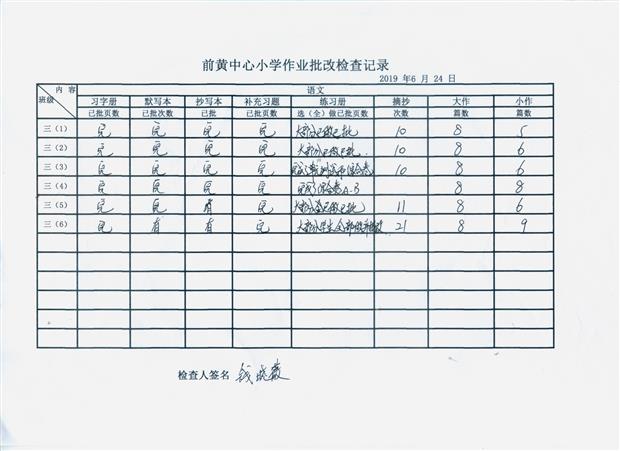 前黄中心小学作业批改检查记录
2019 年6 月 24 日
内 容 语文
班级 习字册 默写本 抄写本 补充习题 练习册 摘抄 大作 小作
已批页数 已批次数 已批 已批页数 选（全）做已批页数 次数 篇数 篇数
三（1） 完 完 完 完 大部分已做已批 10 8 5
三（2） 完 完 完 完 大部分已做已批 10 8 6
三（3） 完 完 完 完 10 8 6
三（4） 完 完 完 完 完成 A-B 8 8
三（5） 完 完 有 完 大部分 已做已批 11 8 6
三（6） 完 有 有 完 大部分学生全部 21 8 9
检查人签名 钱